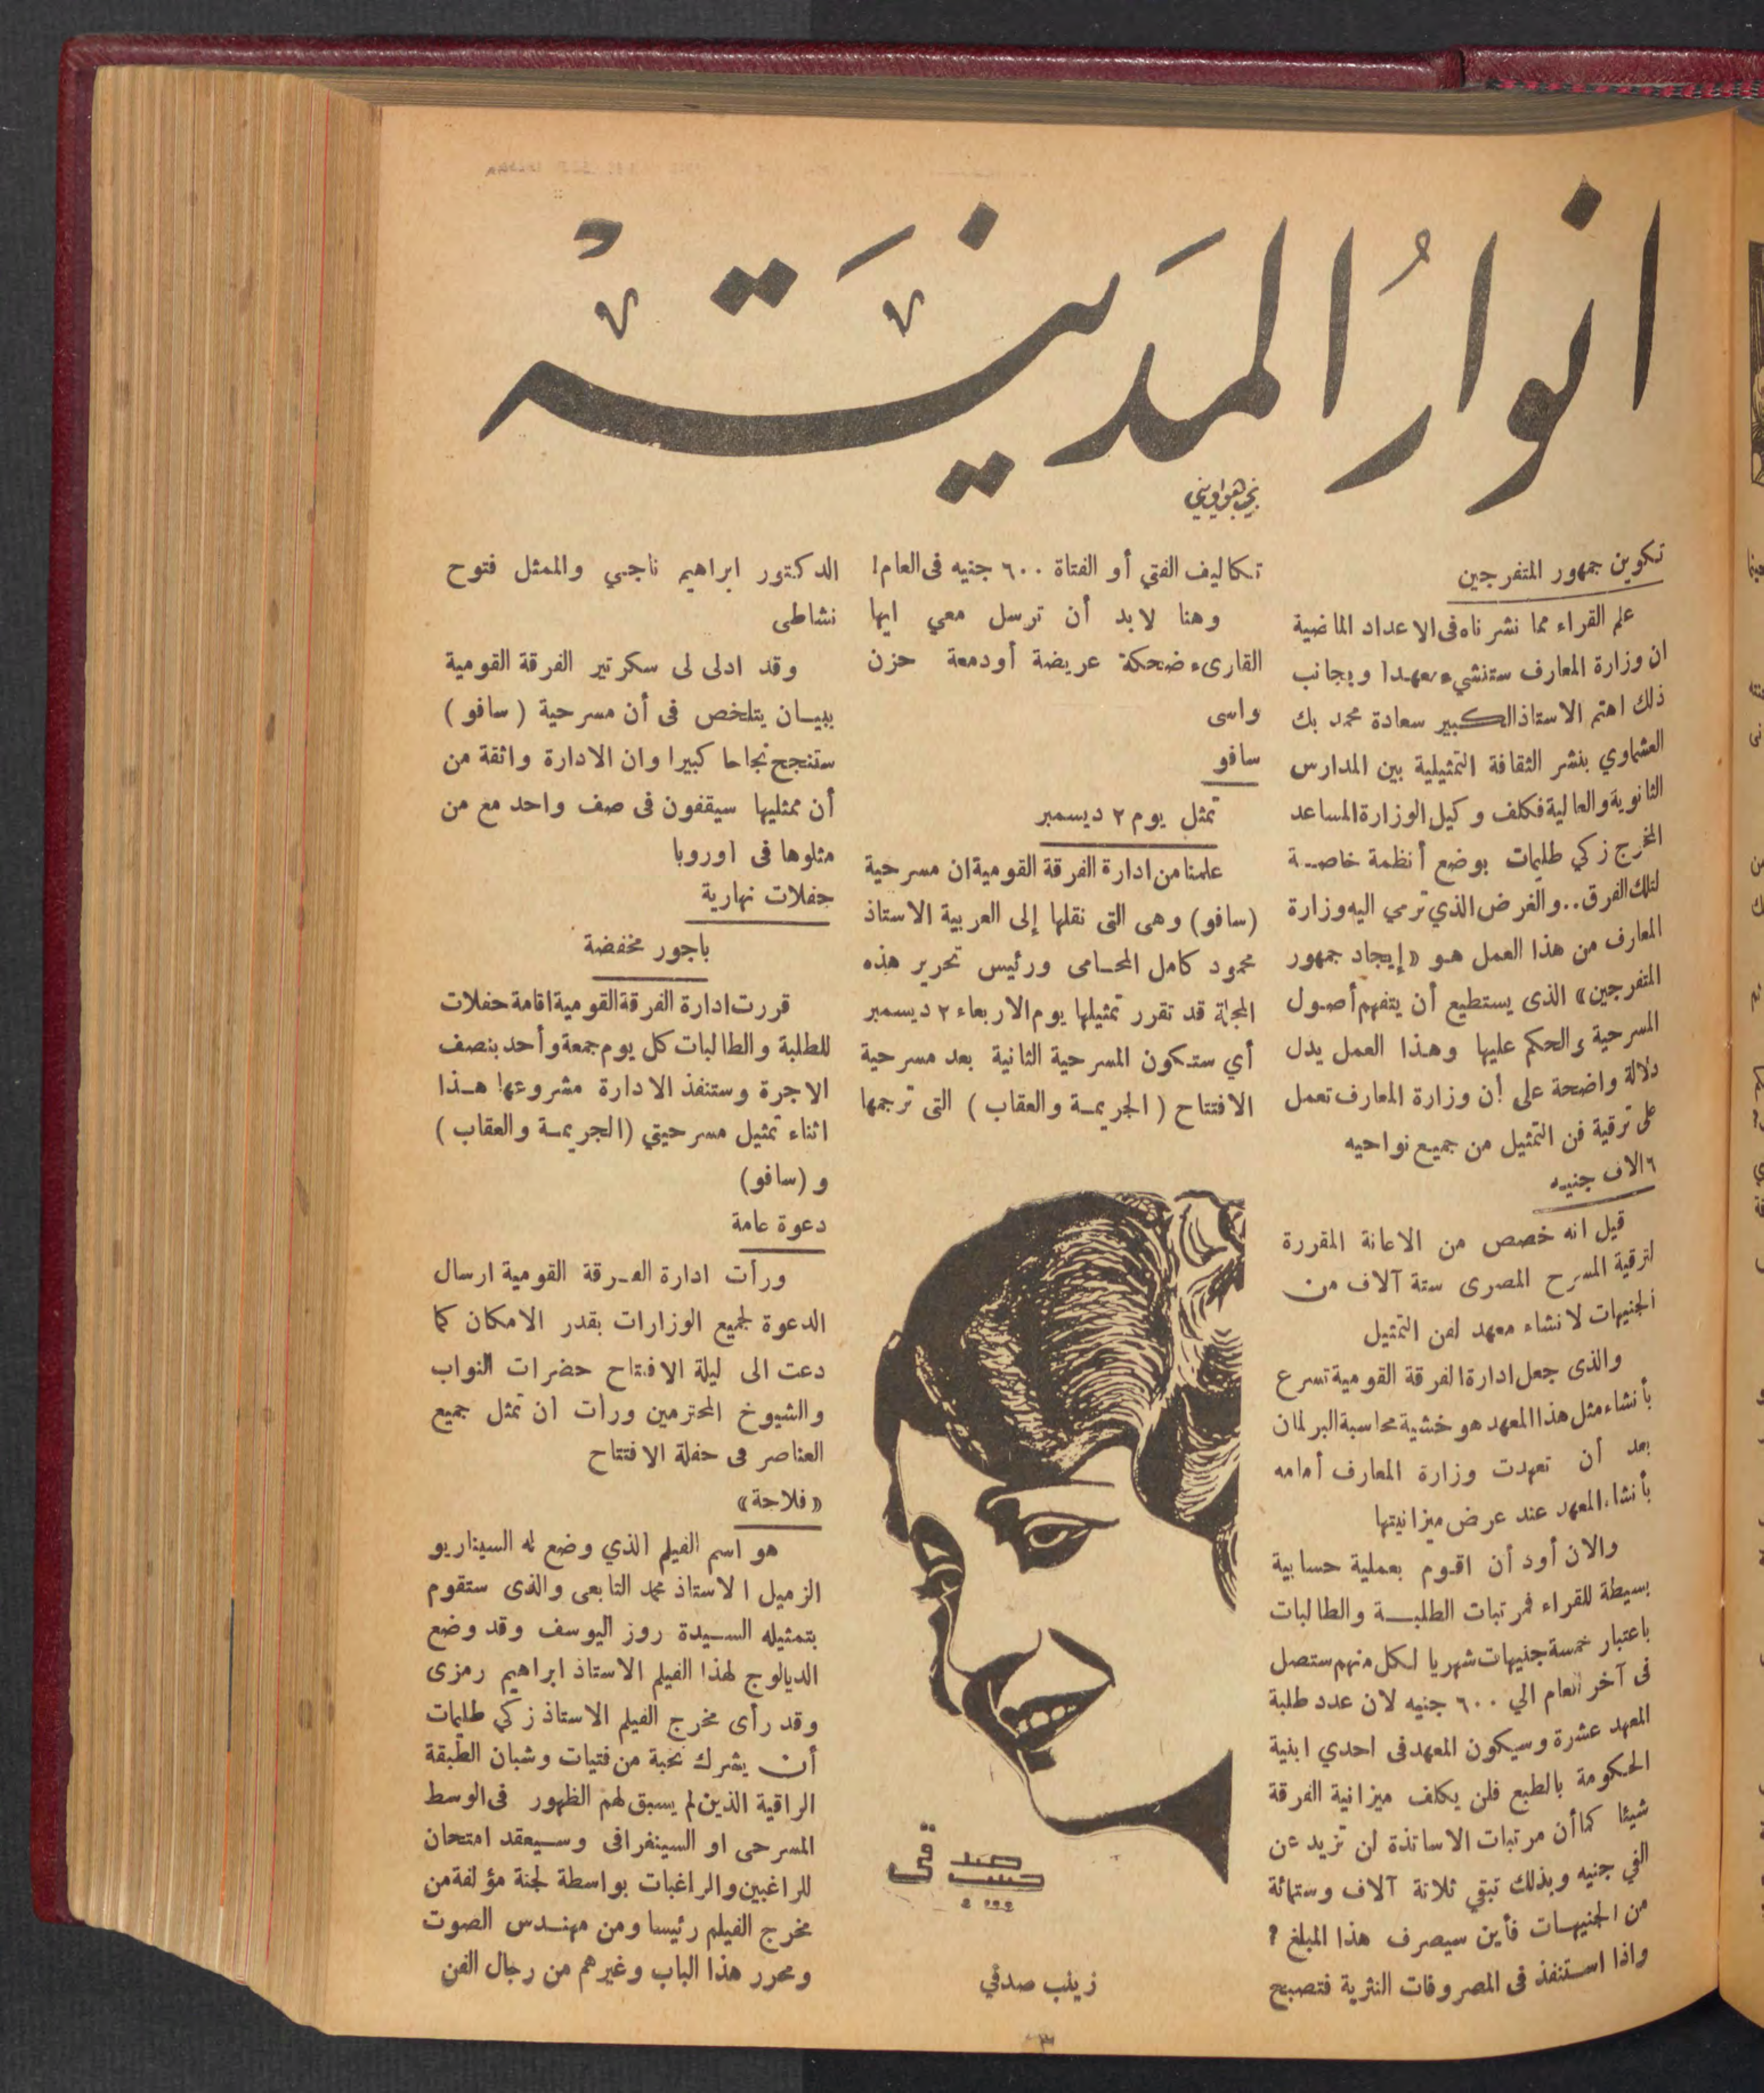 انوارُ المَدينَة
نجيب هواويني
تكوين جمهور المتفرجين
علم القراء مما نشرناه فى الاعداد الماضية
ان وزارة المعارف ستنشيء معهدا وبجانب
ذلك اهتم الاستاذ الكبير سعادة محمد بك
العشماوي بنشر الثقافة التمثيلية بين المدارس
الثانوية والعالية فكلف وكيل الوزارة المساعد
المخرج زكي طليمات بوضع أنظمة خاصة
لتلك الفرق.. والغرض الذي ترمي اليه وزارة
المعارف من هذا العمل هو «إيجاد جمهور
المتفرجين» الذى يستطيع أن يتفهم أصول
المسرحية والحكم عليها وهذا العمل يدل
دلالة واضحة على أن وزارة المعارف تعمل
على ترقية فن التمثيل من جميع نواحيه
٦ الاف جنيه
قيل انه خصص من الاعانة المقررة
لترقية المسرح المصرى ستة آلاف من
الجنيهات لانشاء معهد لفن التمثيل
والذى جعل ادارة الفرقة القومية تسرع
بأنشاء مثل هذا المعهد هو خشية محاسبة البرلمان
بعد أن تعهدت وزارة المعارف أمامه
بأنشاء المعهد عند عرض ميزانيتها
والان أود أن اقوم بعملية حسابية
بسيطة للقراء فمرتبات الطلبة والطالبات
باعتبار خمسة جنيهات شهريا لكل منهم ستصل
فى آخر العام الي ٦٠٠ جنيه لان عدد طلبة
المعهد عشرة وسيكون المعهد فى احدي ابنية
الحكومة بالطبع فلن يكلف ميزانية الفرقة
شيئا كما أن مرتبات الاساتذة لن تزيد عن
الفي جنيه وبذلك تبقي ثلاثة آلاف وستمائة
من الجنيهات فأين سيصرف هذا المبلغ ؟
واذا استنفذ فى المصروفات النثرية فتصبح
تكاليف الفتي أو الفتاة ٦٠٠ جنيه فى العام!
وهنا لابد أن ترسل معي ايها
القارىء ضحكة عريضة أو دمعة حزن
واسى
سافو
تمثل يوم ٢ ديسمبر
علمنا من ادارة الفرقة القومية ان مسرحية
(سافو) وهى التى نقلها إلى العربية الاستاذ
محمود كامل المحامى ورئيس تحرير هذه
المجلة قد تقرر تمثيلها يوم الاربعاء ٢ ديسمبر
أي ستكون المسرحية الثانية بعد مسرحية
الافتتاح (الجريمة والعقاب) التى ترجمها
صدقى
زينب صدقي
الدكتور ابراهيم ناجي والممثل فتوح
نشاطى
وقد ادلى لى سكرتير الفرقة القومية
ببيان يتلخص فى أن مسرحية (سافو)
ستنجح نجاحا كبيرا وان الادارة واثقة من
أن ممثليها سيقفون فى صف واحد مع من
مثلوها فى اوروبا
حفلات نهارية
باجور مخفضة
قررت ادارة الفرقة القومية اقامة حفلات
للطلبة والطالبات كل يوم جمعة وأحد بنصف
الاجرة وستنفذ الادارة مشروعها هذا
اثناء تمثيل مسرحيتي (الجريمة والعقاب)
و (سافو)
دعوة عامة
ورأت ادارة الفرقة القومية ارسال
الدعوة لجميع الوزارات بقدر الامكان كما
دعت الى ليلة الافتتاح حضرات النواب
والشيوخ المحترمين ورأت ان تمثل جميع
العناصر فى حفلة الافتتاح
«فلاحة»
هو اسم الفيلم الذي وضع له السيناريو
الزميل الاستاذ محمد التابعى والذى ستقوم
بتمثيله السيدة روز اليوسف وقد وضع
الديالوج لهذا الفيلم الاستاذ ابراهيم رمزى
وقد رأى مخرج الفيلم الاستاذ زكي طليمات
أن يشرك نخبة من فتيات وشبان الطبقة
الراقية الذين لم يسبق لهم الظهور فى الوسط
المسرحى او السينمرافى وسيعقد امتحان
للراغبين والراغبات بواسطة لجنة مؤلفة من
مخرج الفيلم رئيسا ومن مهندس الصوت
ومحرر هذا الباب وغيرهم من رجال الفن